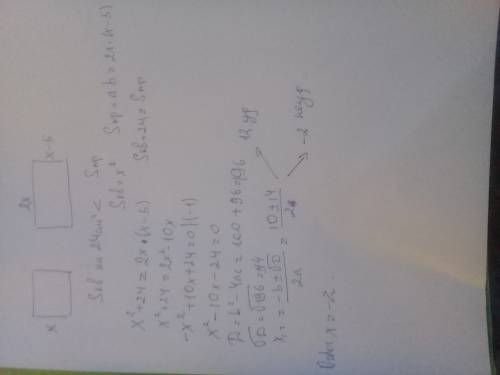 x
2x
x-5
Sкв на 24см² < Sпр
Sкв = x²
Sпр = a b = 2x·(x-5)
Sкв+24 = Sпр
x²+24 = 2x·(x-5)
x²+24 = 2x²-10x
-x²+10x+24=0 |(-1)
x²-10x-24=0
D=b²-4ac = 100+96=196
√D=√196=14
x₁ = = -b±√D / 2a = 10±14 / 2
12 уд
-2 не уд
x = -2.